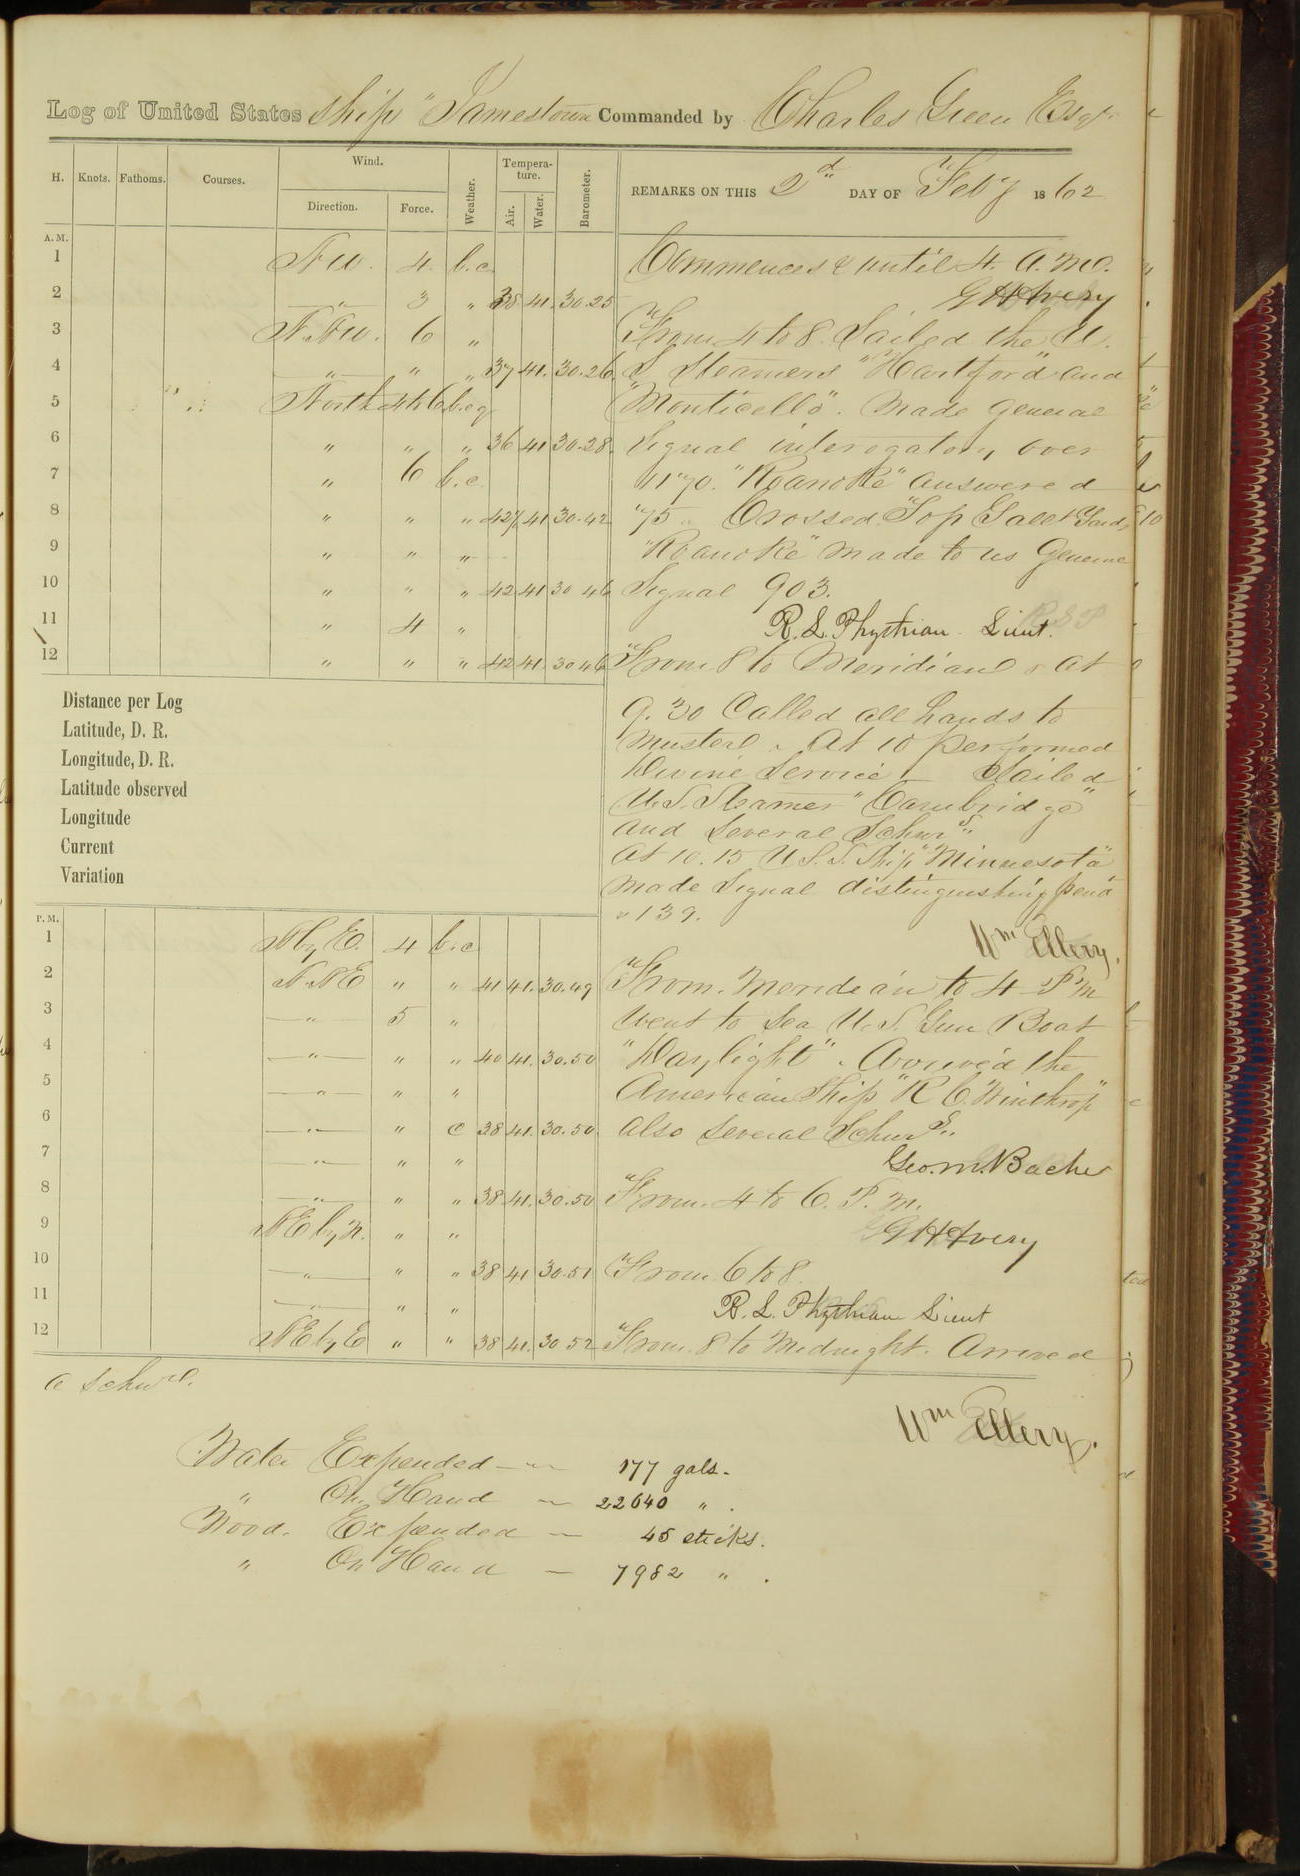 Log of United States Ship "Jamestown Commanded by Charles Green Esqr
H. Knots. Fathoms. Courses. Wind. Direction. Force. Weather. Temperature. Air. Water. Barometer. REMARKS ON THIS 2d DAY OF Feby 1862
A.M.
1 NW. 4 b.c. Commences & until 4. A.M.
GHAvery
2 —"— 3 " 38 41. 30.25
3 N.NW. 6 " From 4 to 8. Sailed the U.
4 —"— " " 37 41. 30.26 S. Steamers "Hartford" and
5 North 4 to 6 b.c.q "Monticello". Made General
6 " " " 36 41 30.28. Signal interogatory over
7 " 6 b.c. 1170. "Roanoke" answered
8 " " " 42½ 41 30.42 "75 " Crossed Top Gallt Yards
9 " " " "Roanoke" made to us General
10 " " " 42 41 30 46 Signal 903.
11 " 4 " R. L. Phythian. Lieut.
12 " " " 42 41. 30 46 From 8 to Meridian. At
Distance per Log 9.30 Called all hands to
Latitude, D. R. Muster. At 10 performed
Longitude, D. R. Divine Service — Sailed
Latitude observed U.S. Steamer "Cambridge"
Longitude and Several Schrs
Current At 10.15 U.S.S. Ship "Minnesota"
Variation made Signal distinguishing pend
139.
P.M.
Wm Ellery.
1 N by E. 4 b.c
2 N.NE " " 41 41. 30.49 From. Meridian to 4 P.M
3 —"— 5 " Went to Sea U.S. Gun Boat
4 —"— " " 40 41. 30.50 "Daylight". Arrived the
5 —"— " " American Ship "R C Winthrop"
6 —"— " c 38 41. 30.50. also Several Schrs
7 —"— " " Geo. M. Bache
8 —"— " " 38 41. 30.50 From. 4 to 6. P.M.
9 NE by N. " " GHAvery
10 —"— " " 38 41 30.51 From 6 to 8.
11 —"— " " R. L. Phythian Lieut
12 NE by E " " 38 41. 30 52 From. 8 to Midnight. Arrived
a Schr.
Wm Ellery.
Water Expended — 177 gals.
" On Hand — 22640 " .
Wood. Expended — 45 sticks.
" On Hand — 7982 " .